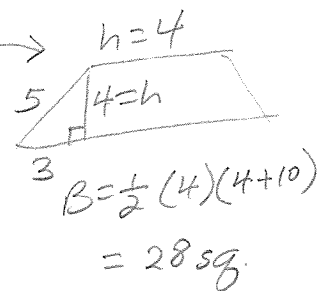 h=4
5
4=h
3
B=½(4)(4+10)
= 28 sq.